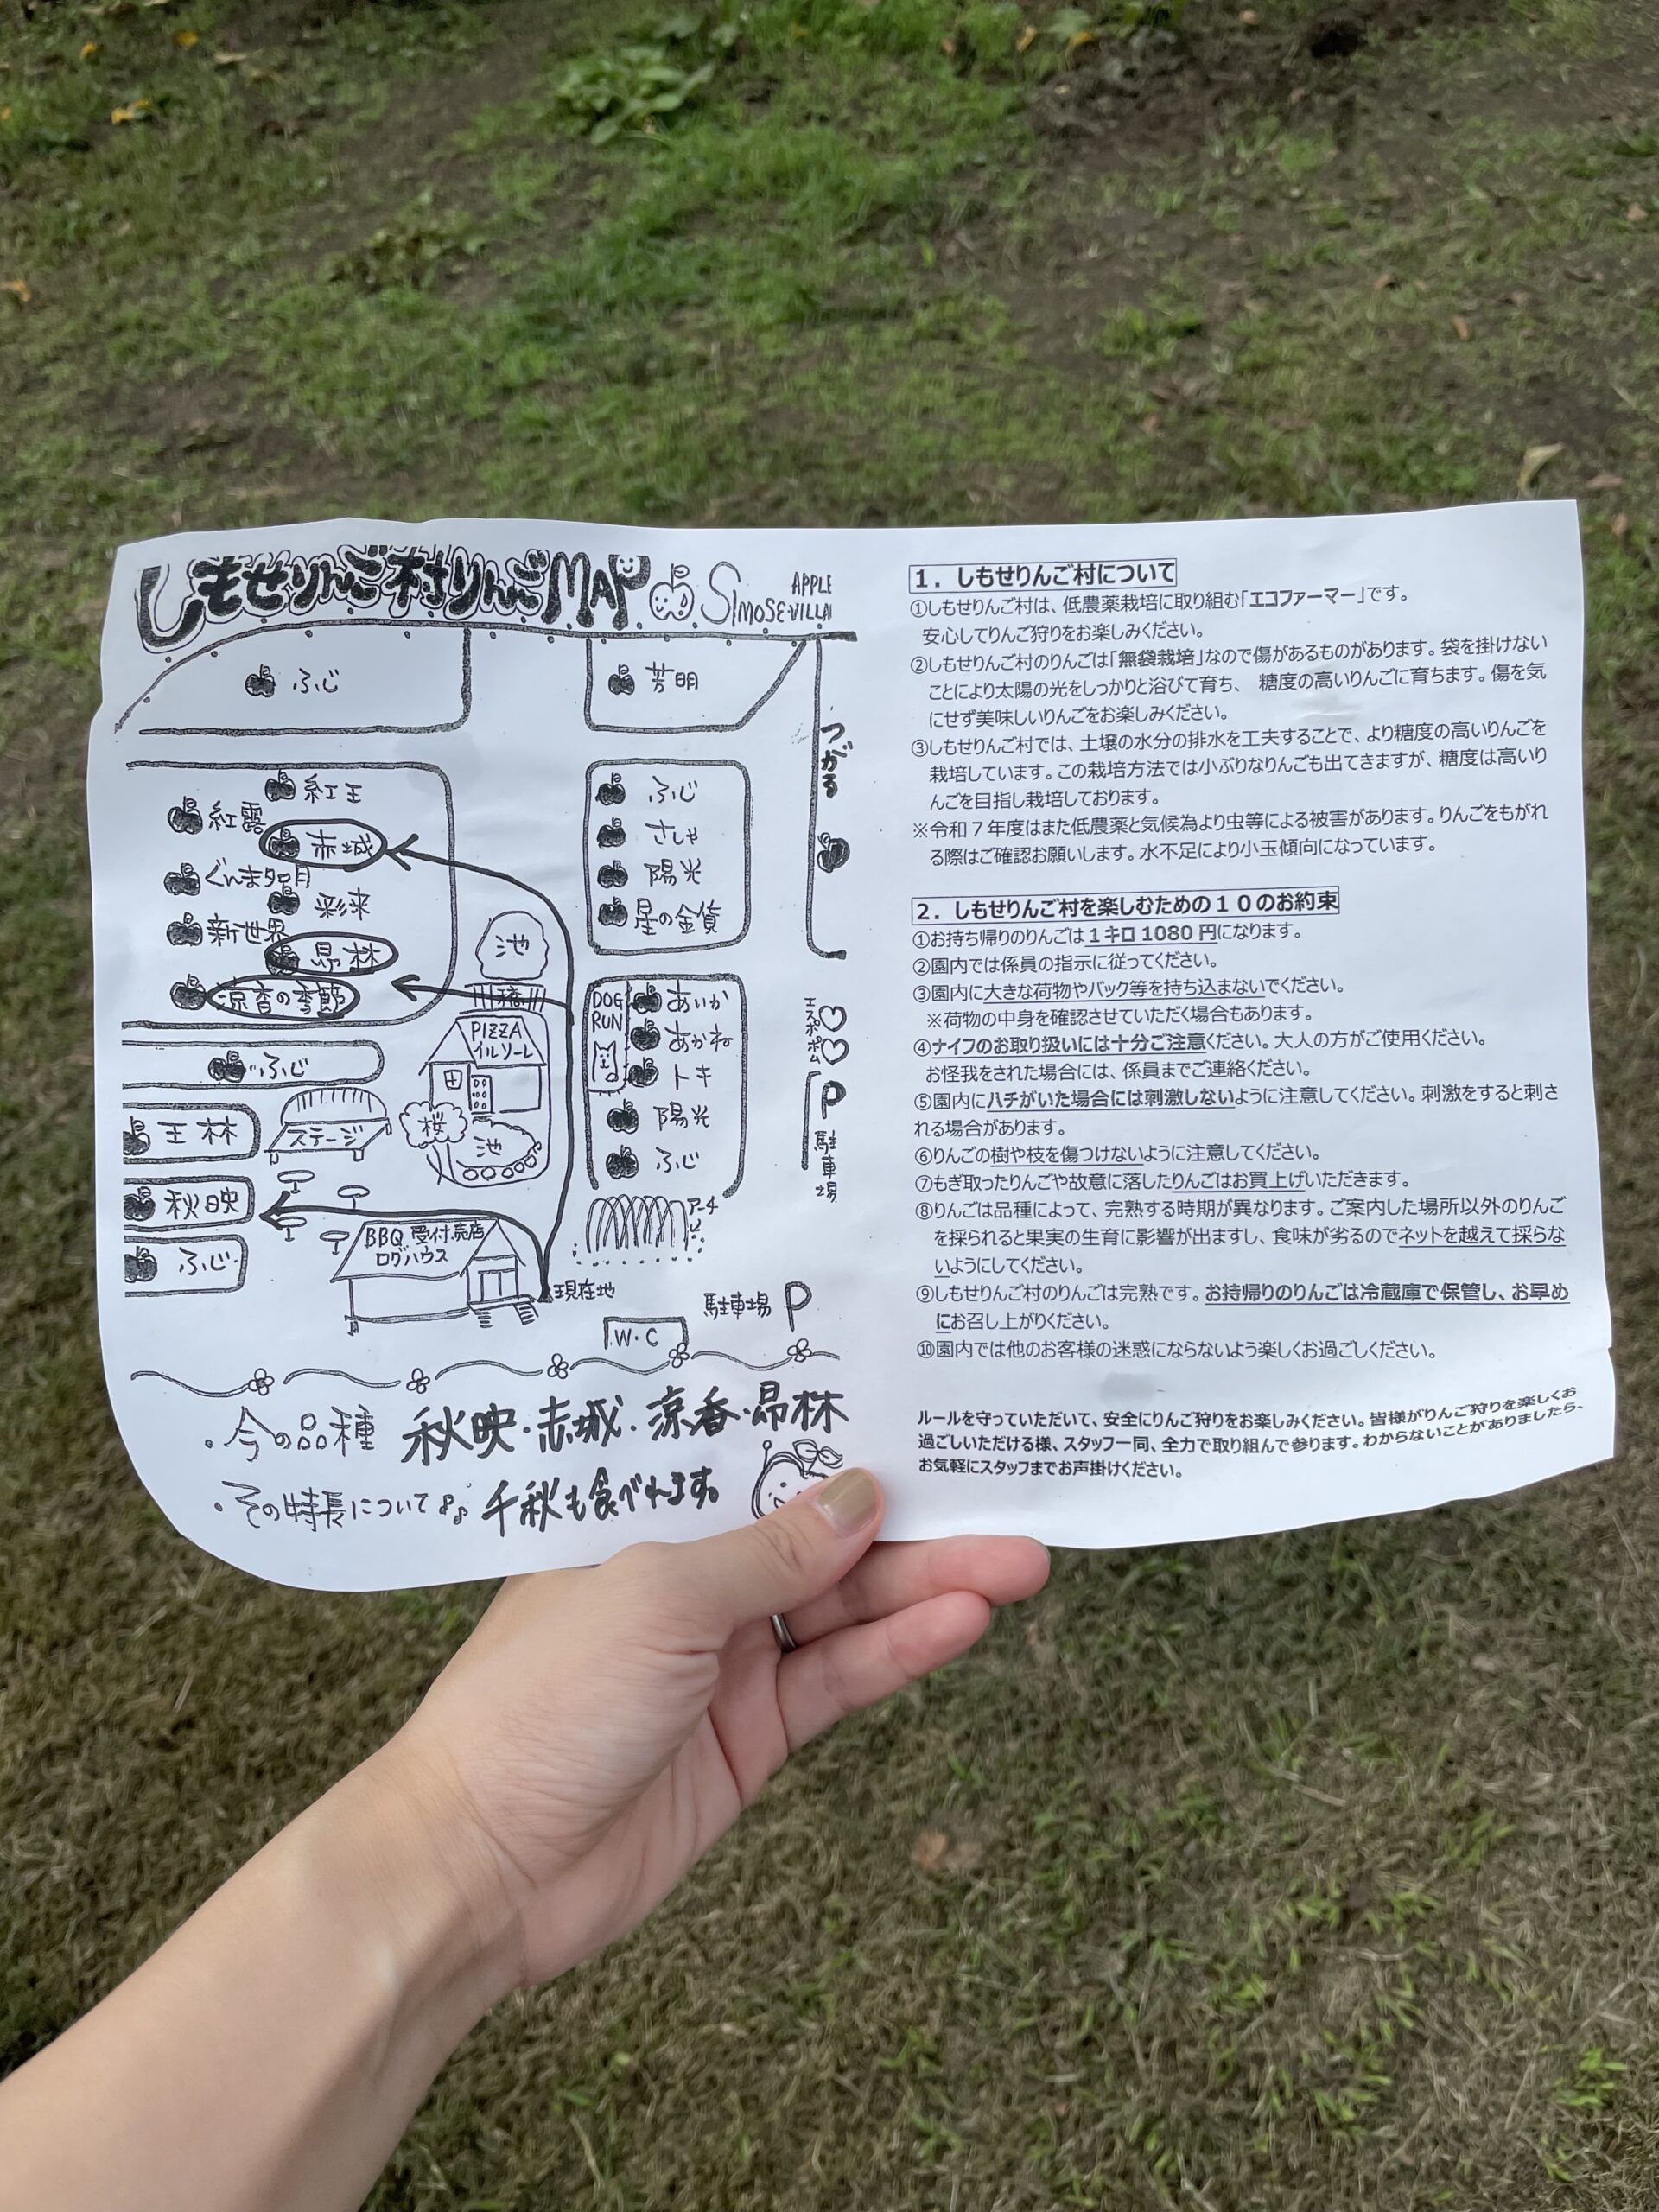 しもせりんご村りんごMAP
SIMOSE-VILLAI
APPLE
ふじ
芳明
つがる
紅王
紅露
赤城
ぐんま名月
彩来
新世界
昂林
涼香の季節
ふじ
さしゃ
陽光
星の金貨
池
橋
DOG
RUN
あいか
あかね
トキ
陽光
ふじ
エスポポム
P
駐車場
PIZZA
イルソーレ
ふじ
桜
池
ステージ
王林
秋映
ふじ
BBQ 受付.売店
ログハウス
アーチ
現在地
駐車場 P
W・C
・今の品種 秋映・赤城・涼香・昂林
・その特長について♪♪ 千秋も食べれます。
1．しもせりんご村について
①しもせりんご村は、低農薬栽培に取り組む「エコファーマー」です。
安心してりんご狩りをお楽しみください。
②しもせりんご村のりんごは「無袋栽培」なので傷があるものがあります。袋を掛けない
ことにより太陽の光をしっかりと浴びて育ち、 糖度の高いりんごに育ちます。傷を気
にせず美味しいりんごをお楽しみください。
③しもせりんご村では、土壌の水分の排水を工夫することで、より糖度の高いりんごを
栽培しています。この栽培方法では小ぶりなりんごも出てきますが、糖度は高いり
んごを目指し栽培しております。
※令和７年度はまた低農薬と気候為より虫等による被害があります。りんごをもがれ
る際はご確認お願いします。水不足により小玉傾向になっています。
2．しもせりんご村を楽しむための１０のお約束
①お持ち帰りのりんごは１キロ 1080 円になります。
②園内では係員の指示に従ってください。
③園内に大きな荷物やバック等を持ち込まないでください。
※荷物の中身を確認させていただく場合もあります。
④ナイフのお取り扱いには十分ご注意ください。大人の方がご使用ください。
お怪我をされた場合には、係員までご連絡ください。
⑤園内にハチがいた場合には刺激しないように注意してください。刺激をすると刺さ
れる場合があります。
⑥りんごの樹や枝を傷つけないように注意してください。
⑦もぎ取ったりんごや故意に落したりんごはお買上げいただきます。
⑧りんごは品種によって、完熟する時期が異なります。ご案内した場所以外のりんご
を採られると果実の生育に影響が出ますし、食味が劣るのでネットを越えて採らな
いようにしてください。
⑨しもせりんご村のりんごは完熟です。お持帰りのりんごは冷蔵庫で保管し、お早め
にお召し上がりください。
⑩園内では他のお客様の迷惑にならないよう楽しくお過ごしください。
ルールを守っていただいて、安全にりんご狩りをお楽しみください。皆様がりんご狩りを楽しくお
過ごしいただける様、スタッフ一同、全力で取り組んで参ります。わからないことがありましたら、
お気軽にスタッフまでお声掛けください。